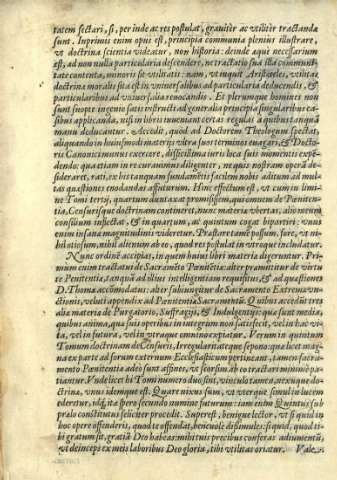 tatem sectari, si, per inde ac res postulat, grauiter ac vtiliter tractandæ
sunt. Inprimis enim opus est, principia communia plenius illustrare,
vt doctrina scientia videatur, non historia: deinde aquè necessarium
est, ad non nulla particularia descendere, ne tractatio sua illa communi-
tate contenta, minoris sit vtilitatis: nam, vt inquit Aristoteles, vtilitas
doctrinæ moralis sita est in vniuersalibus ad particularia deducendis, &
particularibus ad vniuersalia reuocandis. Et plerumque homines non
sunt suopte ingenio satis instructi ad generalia principia singularibus ca-
sibus applicanda, nisi in libris inueniant certas regulas à quibus tanquã
manu deducantur. Accedit, quod ad Doctorem Theologum spectat,
aliquando in huiusmodi materijs vltra suos terminos euagari, & Docto-
ris Canonici munus exercere, difficilima iuris loca sui momentis expẽ-
dendo: quætiam in re curauimus diligenter, ne quis nostram operã de-
sideraret, rati, ex his tanquam fundamẽtis facilem nobis aditum ad mul-
tas quæstiones enodandas affuturum. Hinc effectum est, vt cum in limi-
ne Tomi tertij, quartum dunt axat promissem, qui omnem de Pœniten-
tia, Censurisque doctrinam contineret, hunc materia vbertas, alio nomẽ
consilium inflectat, & in quartum, ac quintum cogat bipartiri: vnus
enim insana magnitudinis videretur. Præstare tamẽ possum, fore, vt ni-
hil otiosum, nihil alienum ab eo, quod res postulat in vtroque includatur.
Nunc ordinẽ accipias, in quem huius libri materia digeruntur. Pri-
mum enim tractatui de Sacramẽto Pœnitẽtia alter præmittitur de virtu-
te Pœnitentia, tanquã ad illius intelligentiam requisitus, & ad quæstiones
D. Thoma accõmodatus: alter subiungitur de Sacramento Extrema vn-
ctionis, veluti appendix ad Pœnitentia Sacramentũ. Quibus accedũt tres
alia materia de Purgatorio, Suffragijs, & Indulgentijs: qua sunt media,
quibus anima, qua suis operibus in integrum non satisfecit, vel in hac vi-
ta, vel in futura, vel in vtraque omnino expiatur. Verum in quintum
Tomum doctrinam de Censuris, Irregularitateque sepono: qua licet mag-
na ex parte ad forum externum Ecclesiasticum pertineant, tamen sacra-
mento Pœnitentia adeò sunt affines, vt seorsim ab eo tractari minimè pa-
tiantur. Vnde licet bi Tomi numero duo sint, vinculo tamen, nexuque do-
ctrina, vnus idemque est. Quare nixus sum, vt vterque simul in lucem
ederetur, idq́, ita spero secundo numine futurum: iam enim Quintus sub
prælo constitutus feliciter procedit. Superest, benigne lector, vt si quid in
hoc opere offenderis, quod te offendat, beneuole dissimules: si quid, quod ti-
bi gratum sit, gratiã Deo habeas: mihi tuis precibus conferas adiumentũ,
vt deinceps ex meis laboribus Deo gloria, tibi vtilitas oriatur. Vale.